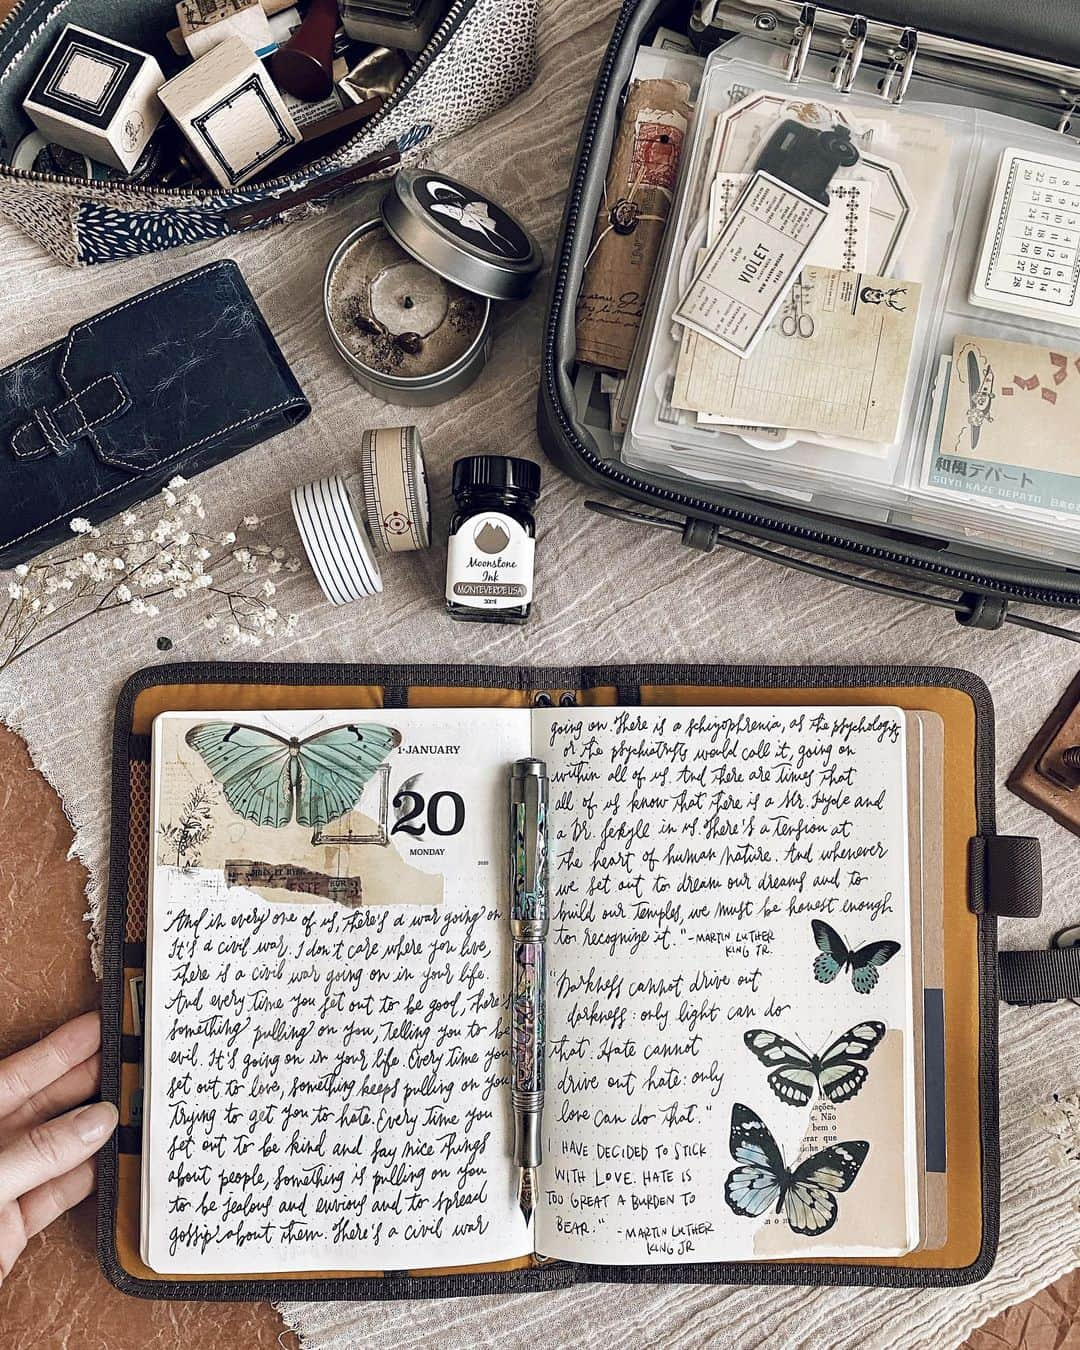 VIOLET
PARIS
和風デパート
SOYO KAZE DEPATO
Moonstone
Ink
MONTEVERDE USA
30ml
1·JANUARY
20
MONDAY
2020
"And in every one of us, there's a war going on.
It's a civil war. I don't care where you live,
there is a civil war going on in your life.
And every time you set out to be good, there's
something pulling on you, telling you to be
evil. It's going on in your life. Every time you
set out to love, something keeps pulling on you
trying to get you to hate. Every time you
set out to be kind and say nice things
about people, something is pulling on you
to be jealous and envious and to spread
gossip about them. There's a civil war
going on. There is a schizophrenia, as the psychologists
or the psychiatrists would call it, going on
within all of us. And there are times that
all of us know that there is a Mr. Hyde and
a Dr. Jekyll in us. There's a tension at
the heart of human nature. And whenever
we set out to dream our dreams and to
build our temples, we must be honest enough
to recognize it." -MARTIN LUTHER
KING JR.
"Darkness cannot drive out
darkness: only light can do
that. Hate cannot
drive out hate: only
love can do that."
I HAVE DECIDED TO STICK
WITH LOVE. HATE IS
TOO GREAT A BURDEN TO
BEAR." -MARTIN LUTHER
KING JR
ações,
Não
bem o
erar que